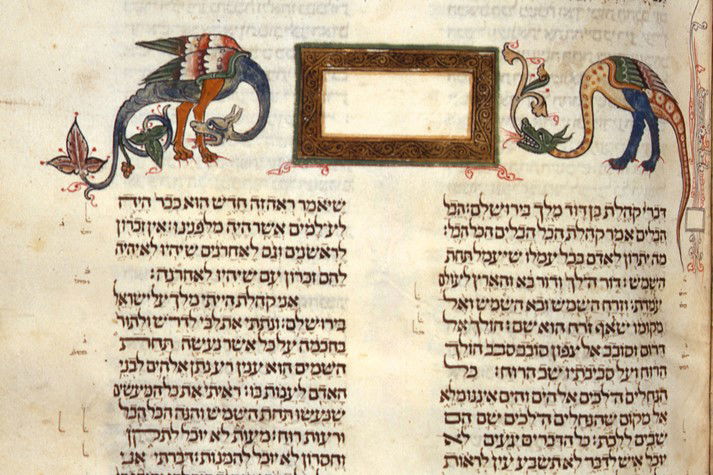 דברי קהלת בן דוד מלך בירושלם: הבל
הבלים אמר קהלת הבל הבלים הכל הבל:
מה יתרון לאדם בכל עמלו שיעמל תחת
השמש: דור הלך ודור בא והארץ לעולם
עמדת: וזרח השמש ובא השמש ואל
מקומו שואף זרח הוא שם: הולך אל
דרום וסובב אל צפון סובב סבב הולך
הרוח ועל סביבתיו שב הרוח: כל
הנחלים הלכים אל הים והים איננו מלא
אל מקום שהנחלים הלכים שם הם
שבים ללכת: כל הדברים יגעים לא
יוכל איש לדבר לא תשבע עין לראות
שיאמר ראה זה חדש הוא כבר היה
לעלמים אשר היה מלפננו: אין זכרון
לראשנים וגם לאחרנים שיהיו לא יהיה
להם זכרון עם שיהיו לאחרנה:
אני קהלת הייתי מלך על ישראל
בירושלם: ונתתי את לבי לדרוש ולתור
בחכמה על כל אשר נעשה תחת
השמים הוא ענין רע נתן אלהים לבני
האדם לענות בו: ראיתי את כל המעשים
שנעשו תחת השמש והנה הכל הבל
ורעות רוח: מעות לא יוכל לתקן
וחסרון לא יוכל להמנות: דברתי אני